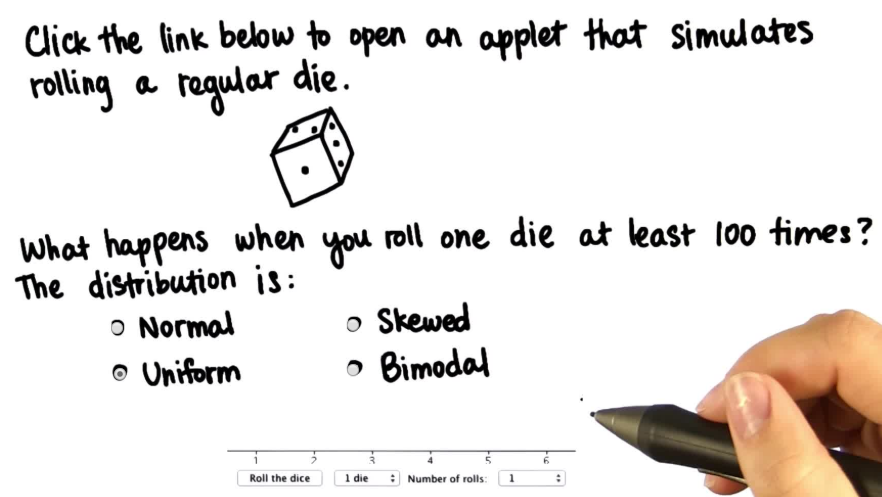 Click the link below to open an applet that simulates
rolling a regular die.
What happens when you roll one die at least 100 times?
The distribution is:
Normal
Skewed
Uniform
Bimodal
1 2 3 4 5 6
Roll the dice 1 die Number of rolls: 1